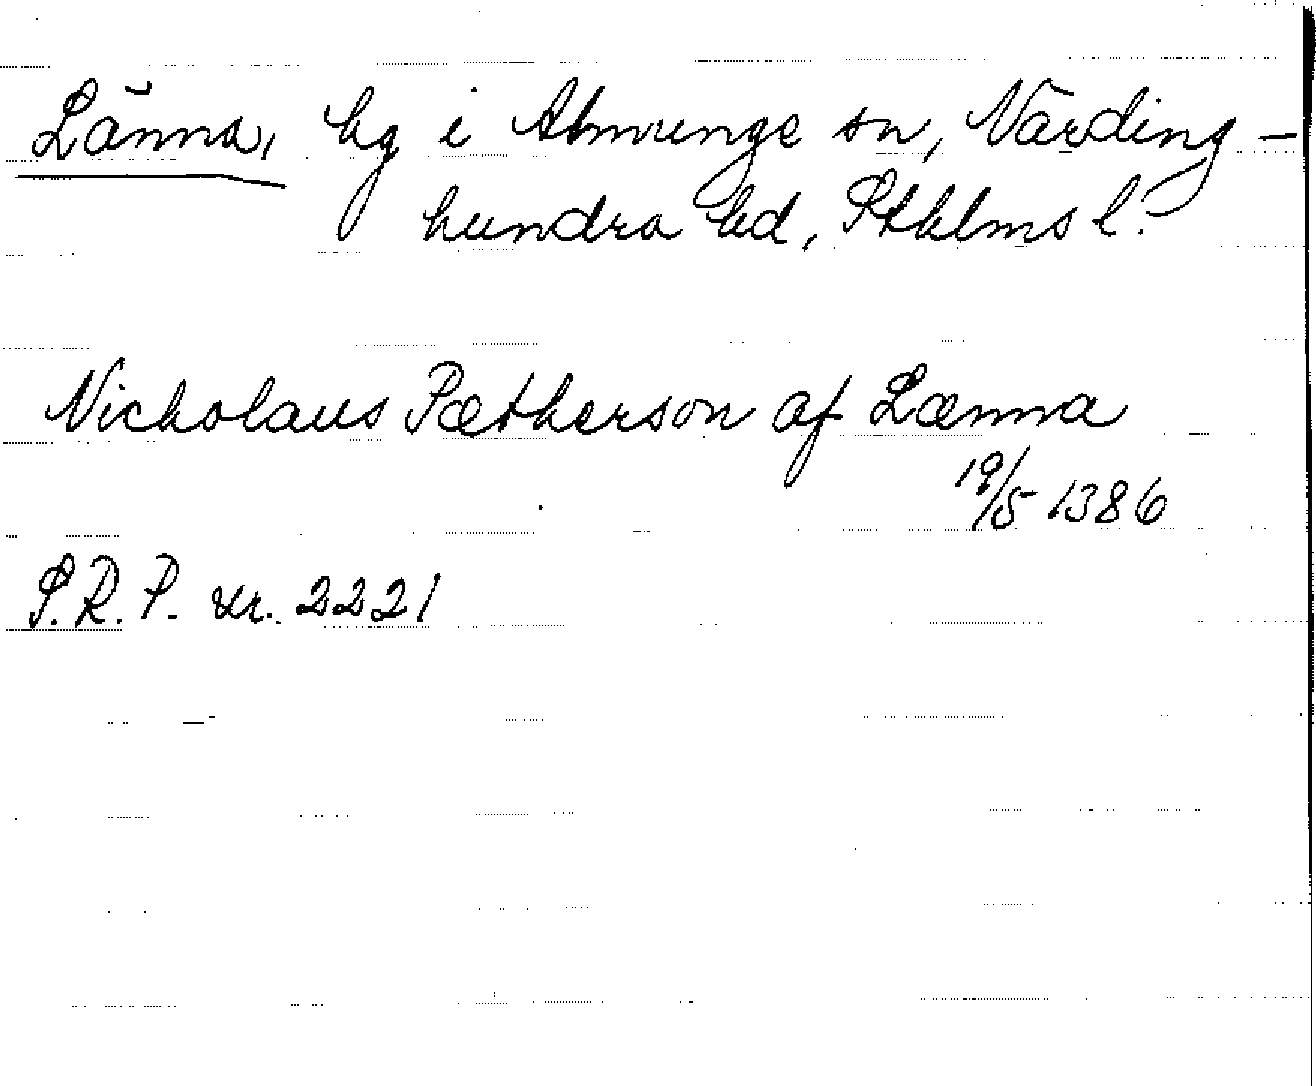 Länna, hg i Almunge sn, Närding-
hundra hd, Sthlms l.
Nicholaus Pætherson af Lænna
19/5 1386
S.R.P. nr. 2221